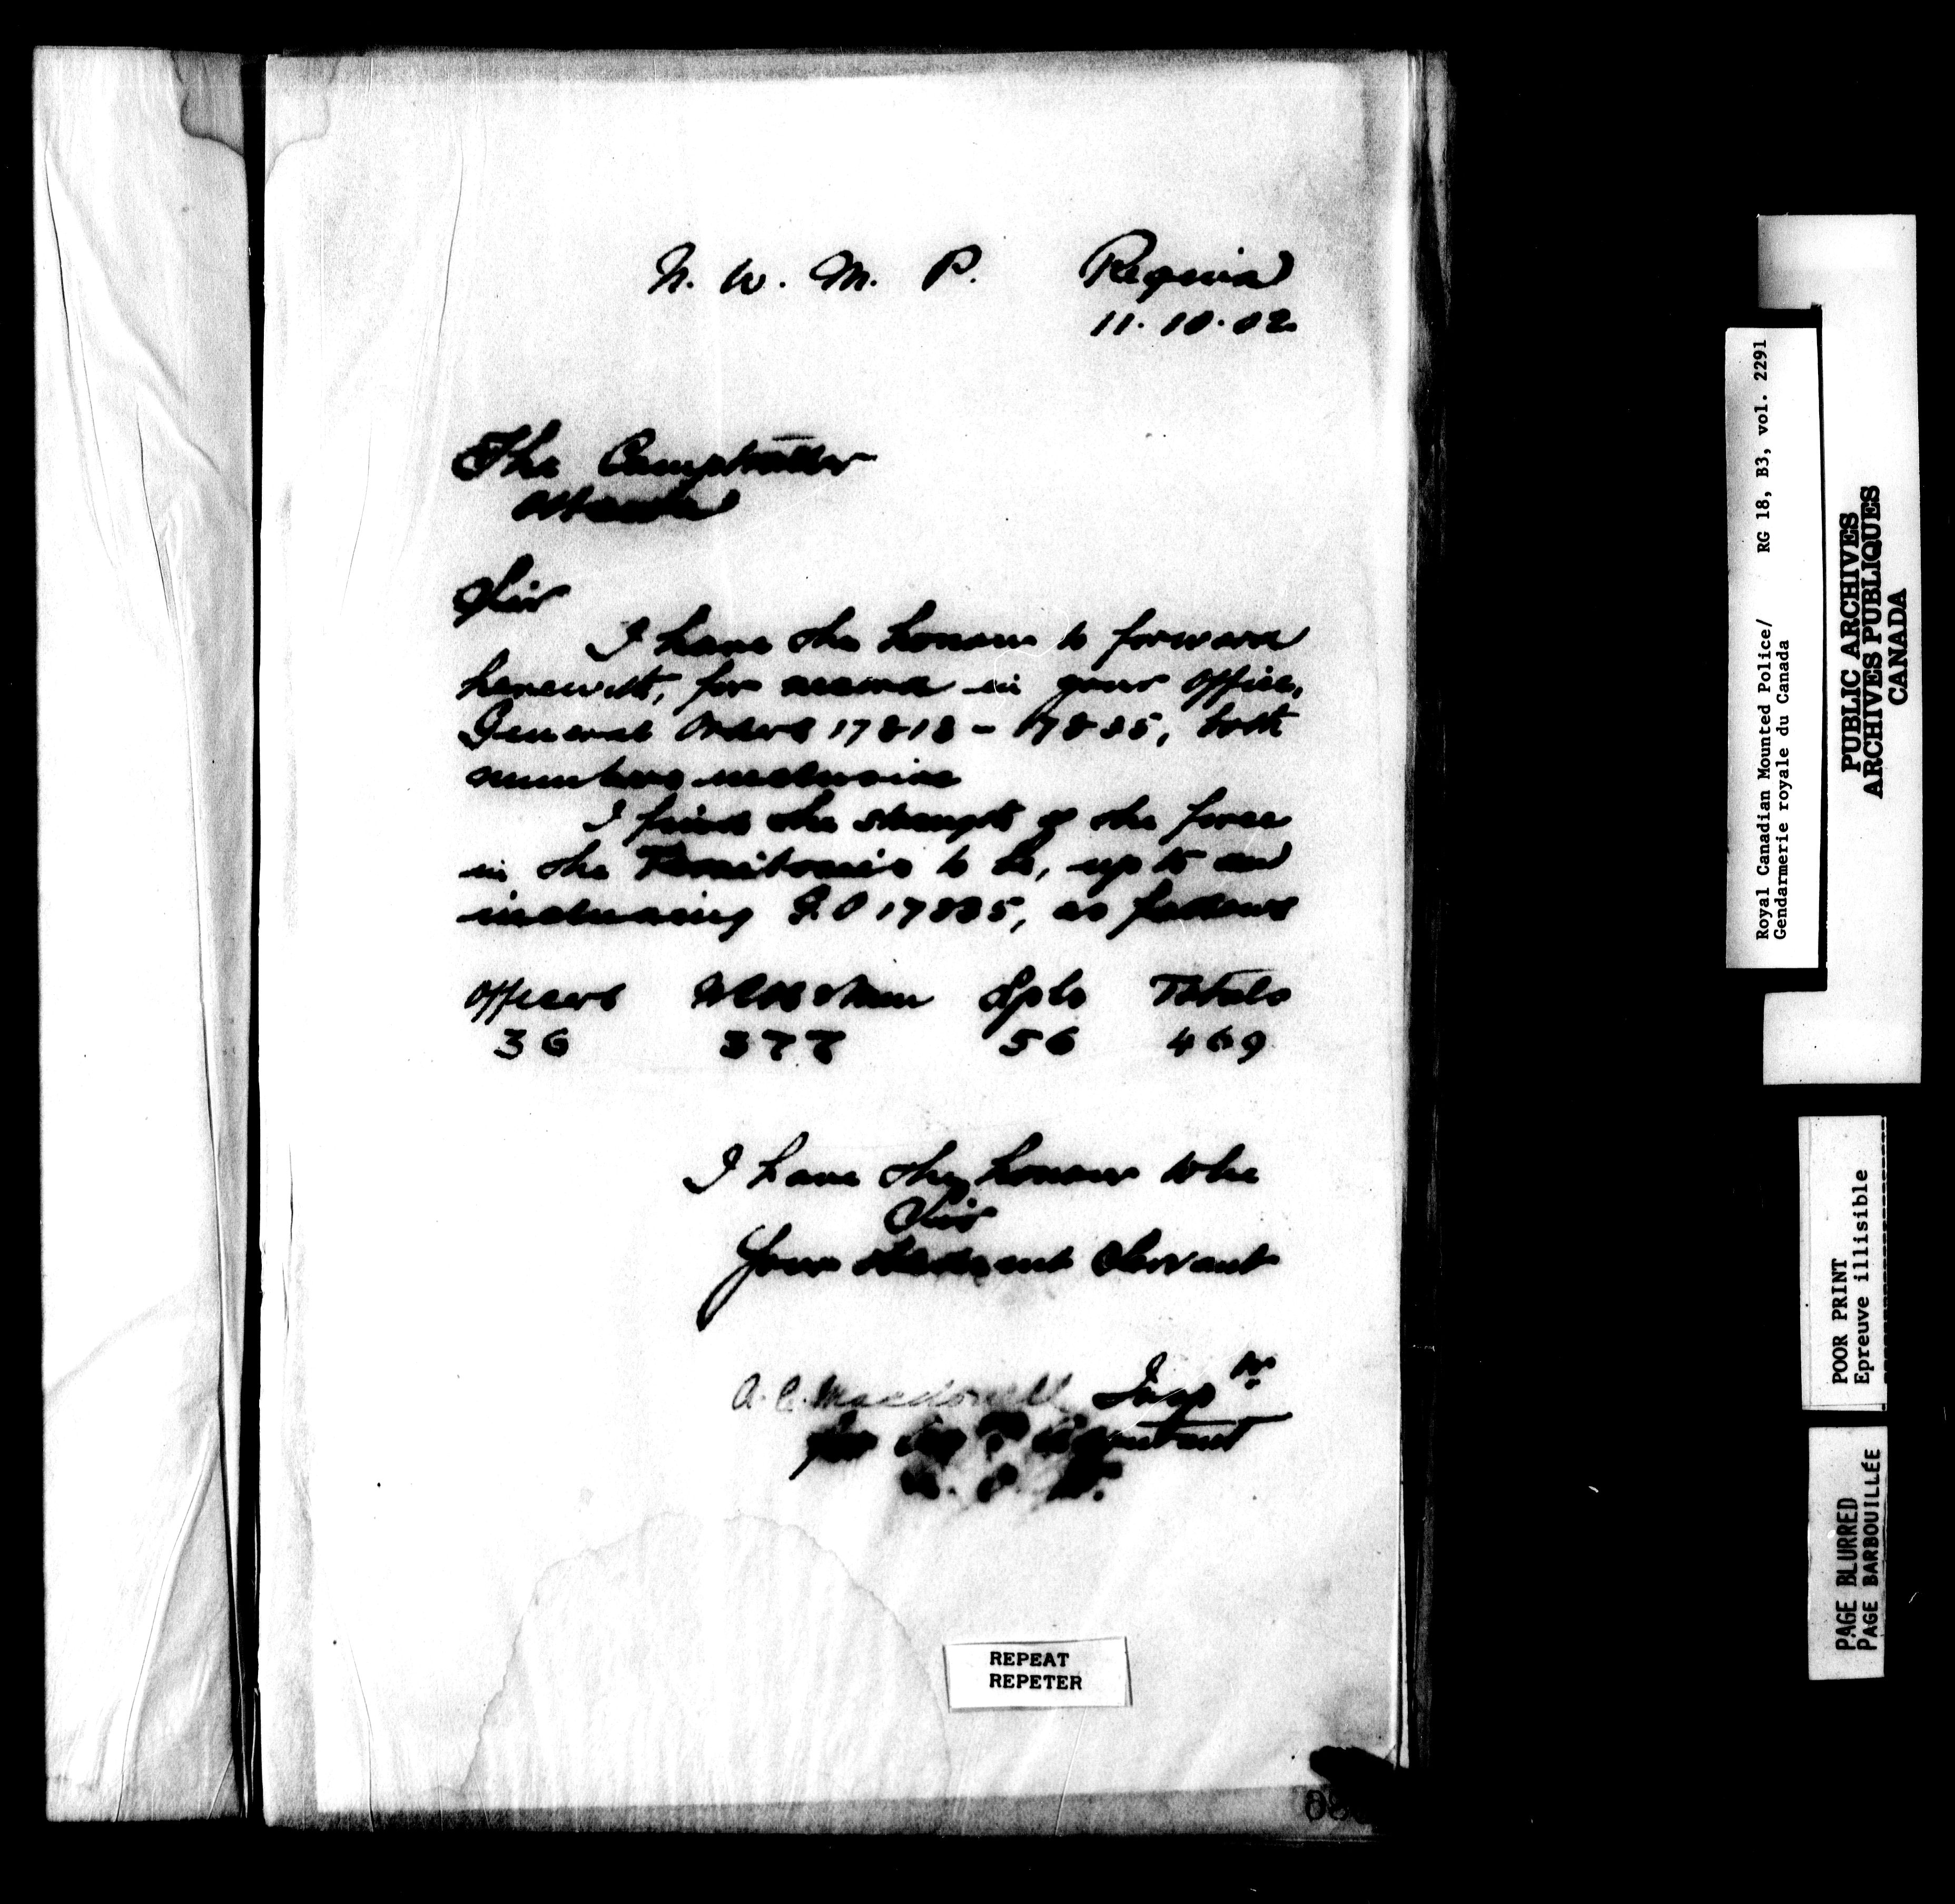 N. W. M. P. Regina
11.10.02
The Comptroller
Ottawa
Sir
I have the honour to forward
herewith, for record in your office,
General Orders 17818 - 17835, both
numbers inclusive
I find the strength of the force
in the Territories to be, up to and
including G.O 17835, as follows
Officers NCOs & Men Spls Totals
36 377 56 469
I have the honour to be
Sir
Your obedient Servant
A. C. Macdonell Inspr
for Adjutant
REPEAT
REPETER
Royal Canadian Mounted Police/ RG 18, B3, vol. 2291
Gendarmerie royale du Canada
PUBLIC ARCHIVES
ARCHIVES PUBLIQUES
CANADA
POOR PRINT
Epreuve illisible
PAGE BLURRED
PAGE BARBOUILLÉE